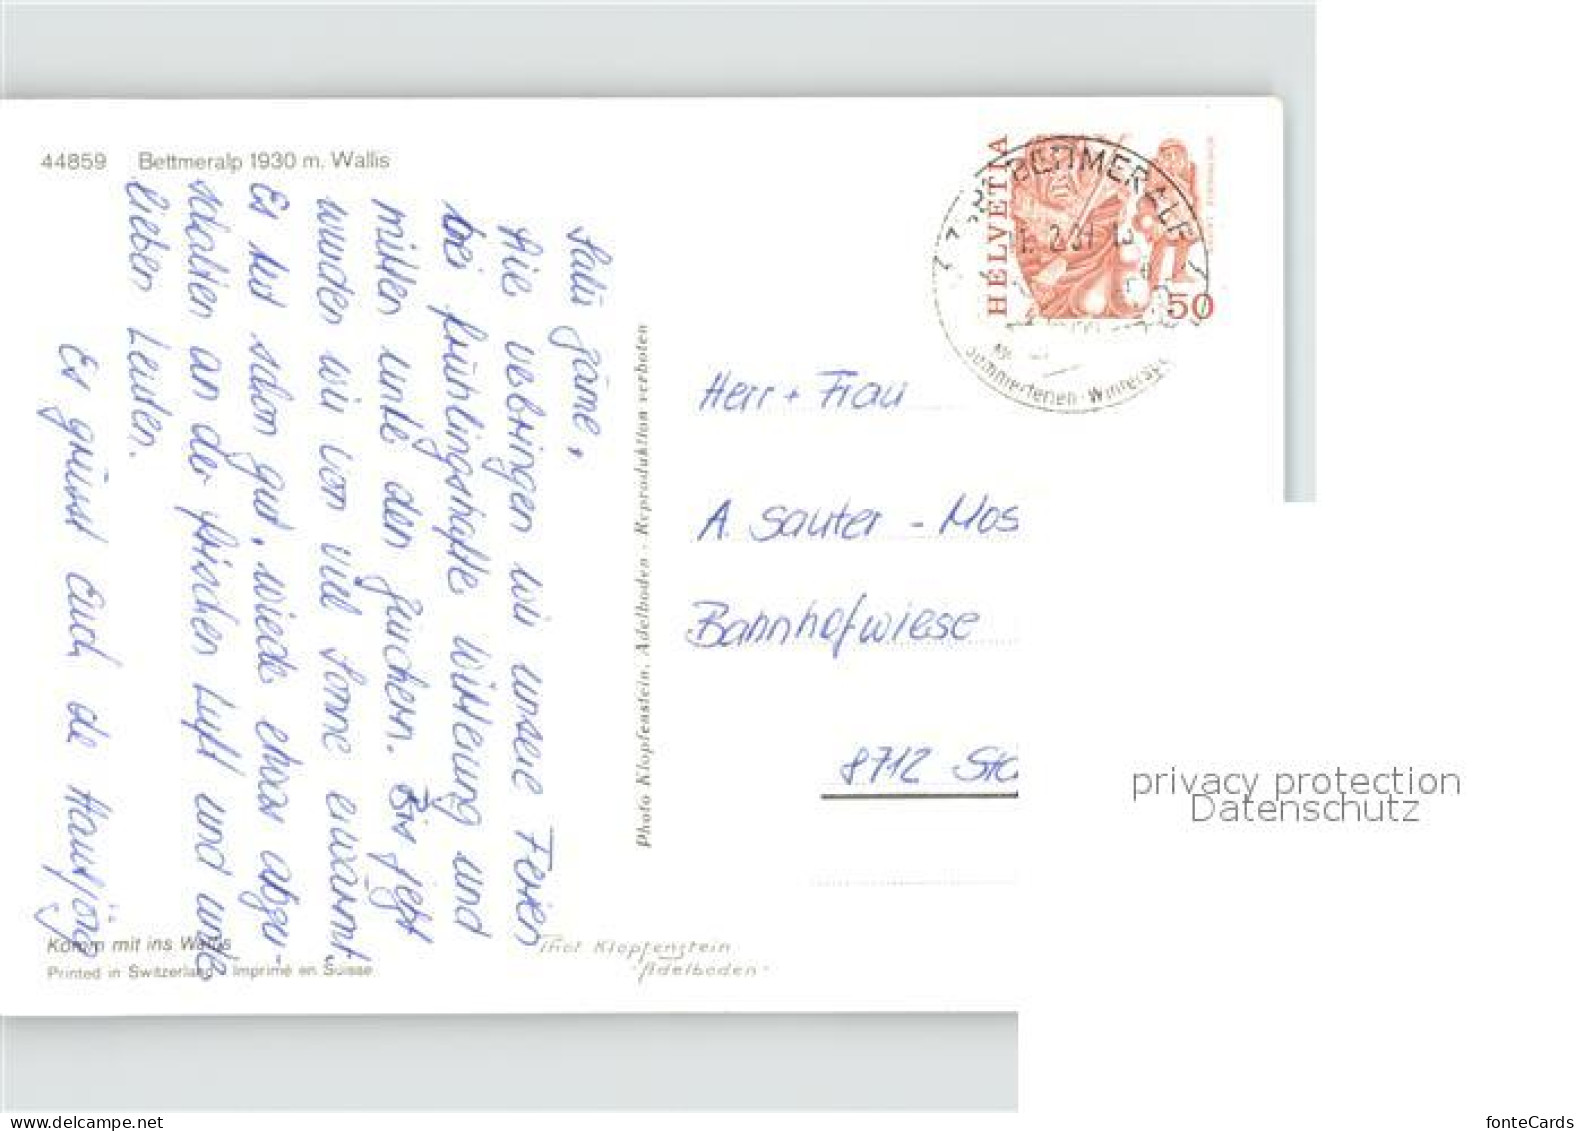 44859 Bettmeralp 1930 m. Wallis
Salü zäme,
Hie verbringen wir unsere Ferien
bei frühlingshafte witterung und
mitten unte den
wunden wir von viel Sonne erwärmt.
Es tut schon gut, wiede etwas abzu-
schalten an der frischen Luft und unte
lieben Leuten.
Es grüsst euch de Hansjörg
Komm mit ins Wallis
Printed in Switzerland - Imprimé en Suisse
Photo Klopfenstein, Adelboden - Reproduktion verboten
Phot Klopfenstein
"Adelboden"
HELVETIA
50
BETTMERALP
Sommerferien - Wintersp
Herr + Frau
A. Sauter - Mos
Bahnhofwiese
8712 Stä
privacy protection
Datenschutz
fonteCards